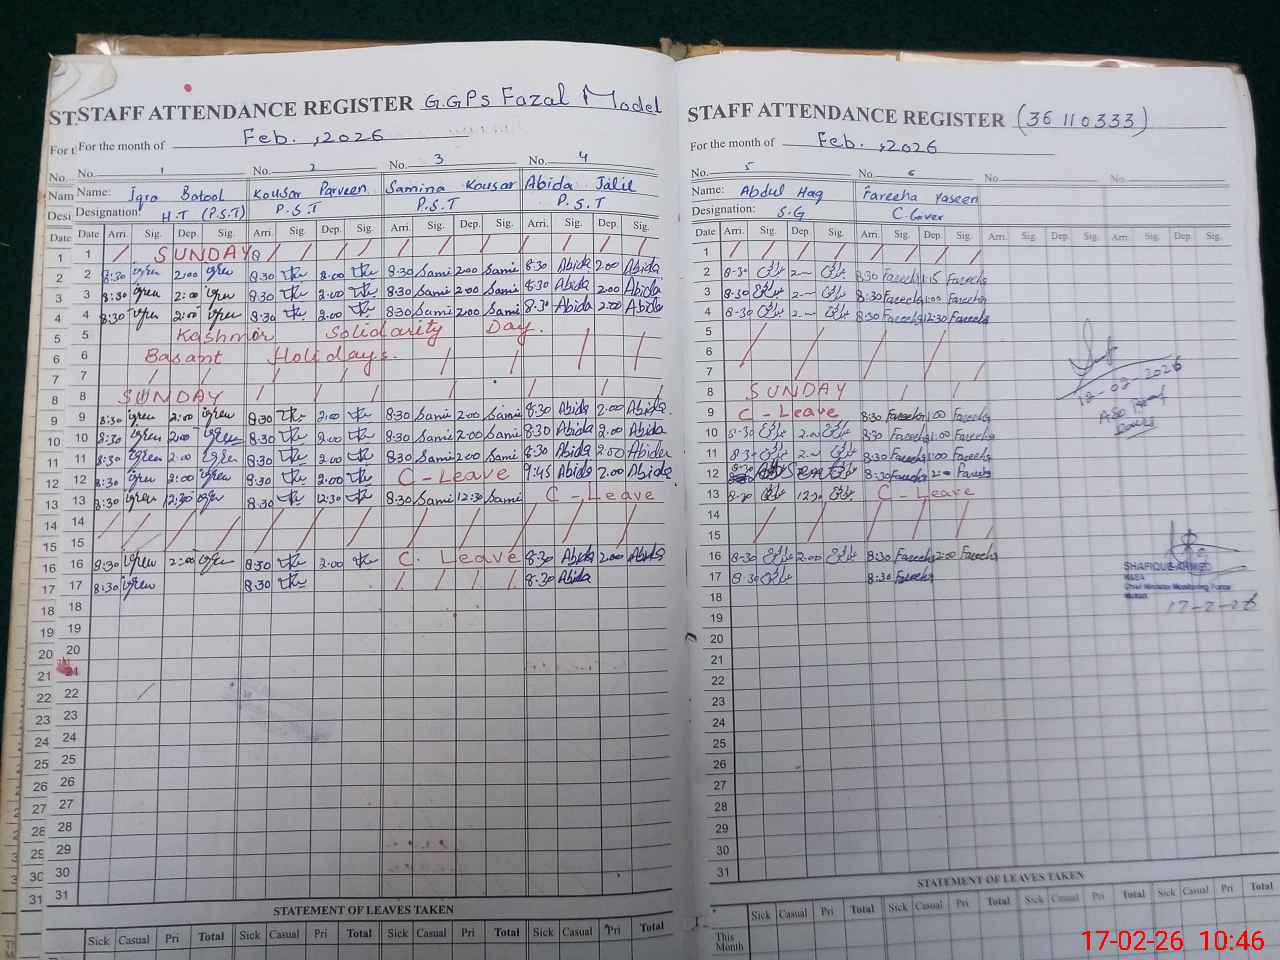 STAFF ATTENDANCE REGISTER G.G.P.S Fazal Model
For the month of Feb. ,2026
No. 1 No. 2 No. 3 No. 4
Name: Iqra Batool Kousar Parveen Samina Kousar Abida Jalil
Designation: H.T (P.S.T) P.S.T P.S.T P.S.T
Date Arri. Sig. Dep. Sig. Arri. Sig. Dep. Sig. Arri. Sig. Dep. Sig. Arri. Sig. Dep. Sig.
1 SUNDAY
2 8:30 2:00 8:30 2:00 8:30 Sami 2:00 Sami 8:30 Abida 2:00 Abida
3 8:30 2:00 8:30 2:00 8:30 Sami 2:00 Sami 8:30 Abida 2:00 Abida
4 8:30 2:00 8:30 2:00 8:30 Sami 2:00 Sami 8:30 Abida 2:00 Abida
5 Kashmir Solidarity Day.
6 Basant Holidays.
7
8 SUNDAY
9 8:30 2:00 8:30 2:00 8:30 Sami 2:00 Sami 8:30 Abida 2:00 Abida
10 8:30 2:00 8:30 2:00 8:30 Sami 2:00 Sami 8:30 Abida 2:00 Abida
11 8:30 2:00 8:30 2:00 8:30 Sami 2:00 Sami 8:30 Abida 2:00 Abida
12 8:30 2:00 8:30 2:00 C-Leave 9:45 Abida 2:00 Abida
13 8:30 12:30 8:30 12:30 8:30 Sami 12:30 Sami C-Leave
14
15
16 8:30 2:00 8:30 2:00 C. Leave 8:30 Abida 2:00 Abida
17 8:30 8:30 8:30 Abida
18
19
20
21
22
23
24
25
26
27
28
29
30
31
STATEMENT OF LEAVES TAKEN
Sick Casual Pri Total Sick Casual Pri Total Sick Casual Pri Total Sick Casual Pri Total
STAFF ATTENDANCE REGISTER (36110333)
For the month of Feb. ,2026
No. 5 No. 6 No. No.
Name: Abdul Haq Fareeha Yaseen
Designation: S.G C.Giver
Date Arri. Sig. Dep. Sig. Arri. Sig. Dep. Sig. Arri. Sig. Dep. Sig. Arri. Sig. Dep. Sig.
1
2 8-30 2- 8:30 Fareeha 1:15 Fareeha
3 8-30 2- 8:30 Fareeha 1:00 Fareeha
4 8-30 2- 8:30 Fareeha 12:30 Fareeha
5
6
7
8 SUNDAY
9 C-Leave 8:30 Fareeha 1:00 Fareeha
10 8-30 2- 8:30 Fareeha 1:00 Fareeha
11 8-30 2- 8:30 Fareeha 1:00 Fareeha
12 8-30 8:30 Fareeha 2:00 Fareeha
13 8-30 12-30 C-Leave
14
15
16 8-30 2-00 8:30 Fareeha 2:00 Fareeha
17 8-30 8:30 Fareeha
18
19
20
21
22
23
24
25
26
27
28
29
30
31
SHAFIQUE AHMED
MEA
Chief Minister Monitoring Force
Multan
17-2-26
STATEMENT OF LEAVES TAKEN
Sick Casual Pri Total Sick Casual Pri Total Sick Casual Pri Total
This Month
17-02-26 10:46